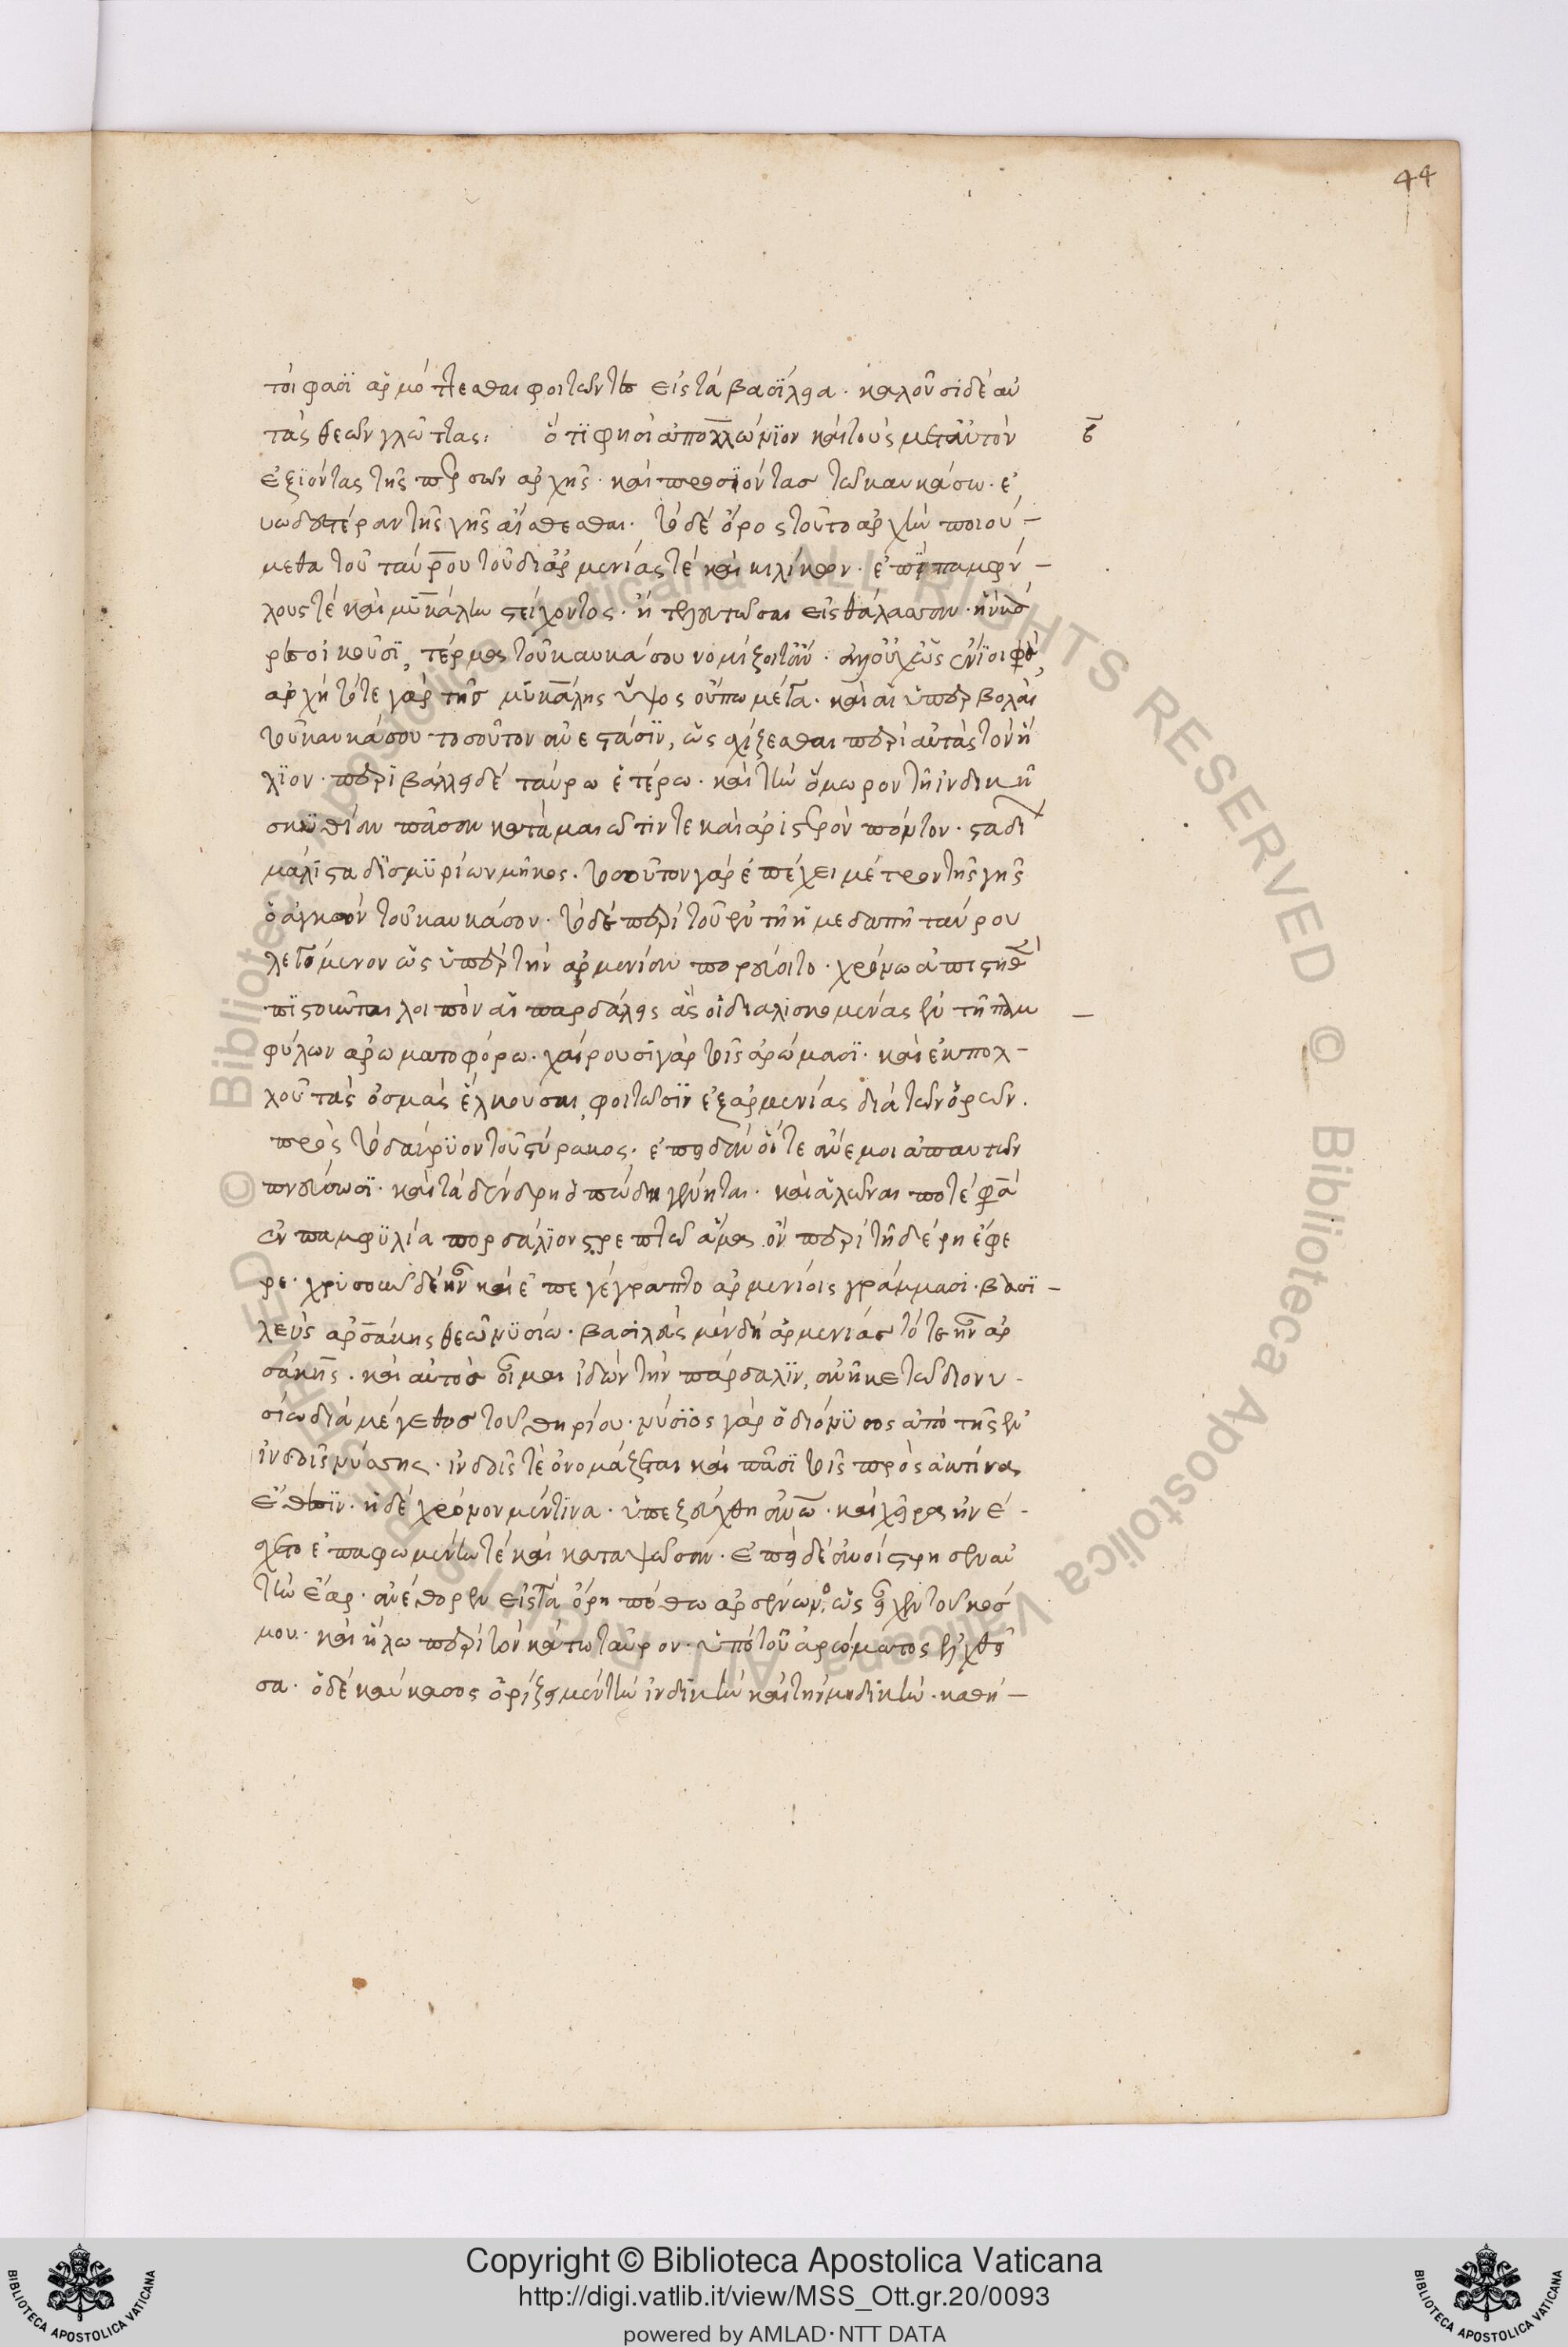 44
τοι φασϊ ἁρμόττεσθαι φοιτῶντα εἰς τὰ βασίλεια · καλοῦσι δὲ αὐ
τὰς θεῶν γλώττας : ὅτι φησὶ ἀπολλώνιον καὶ τοὺς μετ' αὐτὸν
ἐξιόντας τῆς περσῶν ἀρχῆς · καὶ προσιόντας τῶ καυκάσω · εὐ
ωδεστέραν τῆς γῆς αἰσθέσθαι · τὸ δὲ ὄρος τοῦτο ἀρχὴν ποιού –
μεθα τοῦ ταύρου τοῦ δι' ἀρμενίας τε καὶ κιλίκων · ἐπὶ παμφύ –
λους τε καὶ μυκάλην στείχοντος · ἡ τελευτῶσα εἰς θάλασσαν · ἣν κᾶ
ρες οἰκοῦσϊ, τέρμα τοῦ καυκάσου νομίζοιτ' ἄν · ἀλλ' οὐχ ὡς ἔνιοί φασιν
ἀρχή τό τε γὰρ τῆς μυκάλης ὕψος οὔπω μέγα · καὶ αἱ ὑπερβολαὶ
τοῦ καυκάσου τοσοῦτον ἀνεστᾶσιν, ὡς σχίζεσθαι περὶ αὐτὰς τὸν ἥ
λϊον · περιβάλλει δὲ ταύρω ἑτέρω · καὶ τὴν ὅμορον τῆ ἰνδικῆ
σκυθίαν πᾶσαν κατὰ μαιῶτίν τε καὶ ἀριστερὸν πόντον · σταδί
μάλιστα δισμυρίων μῆκος · τοσοῦτον γὰρ ἐπέχει μέτρον τῆς γῆς
ὁ ἀγκὼν τοῦ καυκάσου · τὸ δὲ περὶ τοῦ ἐν τῆ ἡμεδαπῆ ταύρου
λεγόμενον ὡς ὑπὲρ τὴν ἀρμενίαν πορεύοιτο · χρόνω ἀπιστηθὲν
πιστοῦνται λοιπὸν αἱ παρδάλεις ἃς οἶδα ἁλισκομένας ἐν τῆ παμ –
φύλων ἀρωματοφόρω · χαίρουσι γὰρ τοῖς ἀρώμασϊ · καὶ ἐκ πολ –
λοῦ τὰς ὀσμὰς ἕλκουσαι, φοιτῶσιν ἐξ ἀρμενίας διὰ τῶν ὀρῶν ·
πρὸς τὸ δάκρυον τοῦ στύρακος · ἐπειδὰν οἵ τε ἄνεμοι ἀπ' αὐτῶν
πνεύσωσϊ · καὶ τὰ δένδρη ὀπώδη γένηται · καὶ ἁλῶναί ποτέ φασιν
ἐν παμφυλία πάρδαλιν στρεπτῶ ἅμα ὃν περὶ τῆ δέρη ἔφε
ρε · χρυσοῦς δὲ ἦν καὶ ἐπεγέγραπτο ἀρμενίοις γράμμασι · βασι –
λεὺς ἀρσάκης θεῶ νυσίω · βασιλεὺς μὲν δὴ ἀρμενίας τότε ἦν ἀρ
σάκης · καὶ αὐτὸς οἶμαι ἰδὼν τὴν πάρδαλϊν, ἀνῆκε τῶ διονυ –
σίω διὰ μέγεθος τοῦ θηρίου · νύσϊος γὰρ ὁ διόνυσος ἀπὸ τῆς ἐν
ἰνδοῖς νύσης · ἰνδοῖς τε ὀνομάζεται καὶ πᾶσϊ τοῖς πρὸς ἀκτῖνα
ἔθεσιν · ἡ δὲ χρόνον μέν τινα · ὑπεζεύχθη ἀνθρώπω · καὶ χεῖρα ἠνέ –
σχετο ἐπαφωμένην τε καὶ καταψῶσαν · ἐπεὶ δὲ ἀνοίστρησεν αὐ
τὴν ἔαρ · ἀνέθορεν εἰς τὰ ὄρη πόθω ἀρσένων, ὡς εἶχεν τοῦ κόσ
μου · καὶ ἥλω περὶ τὸν κάτω ταῦρον · ὑπὸ τοῦ ἀρώματος ἑλχθεῖ
σα · ὁ δὲ καύκασος ὁρίζει μὲν τὴν ἰνδικὴν καὶ τὴν μηδικὴν · καθή –
Copyright © Biblioteca Apostolica Vaticana
http://digi.vatlib.it/view/MSS_Ott.gr.20/0093
powered by AMLAD · NTT DATA